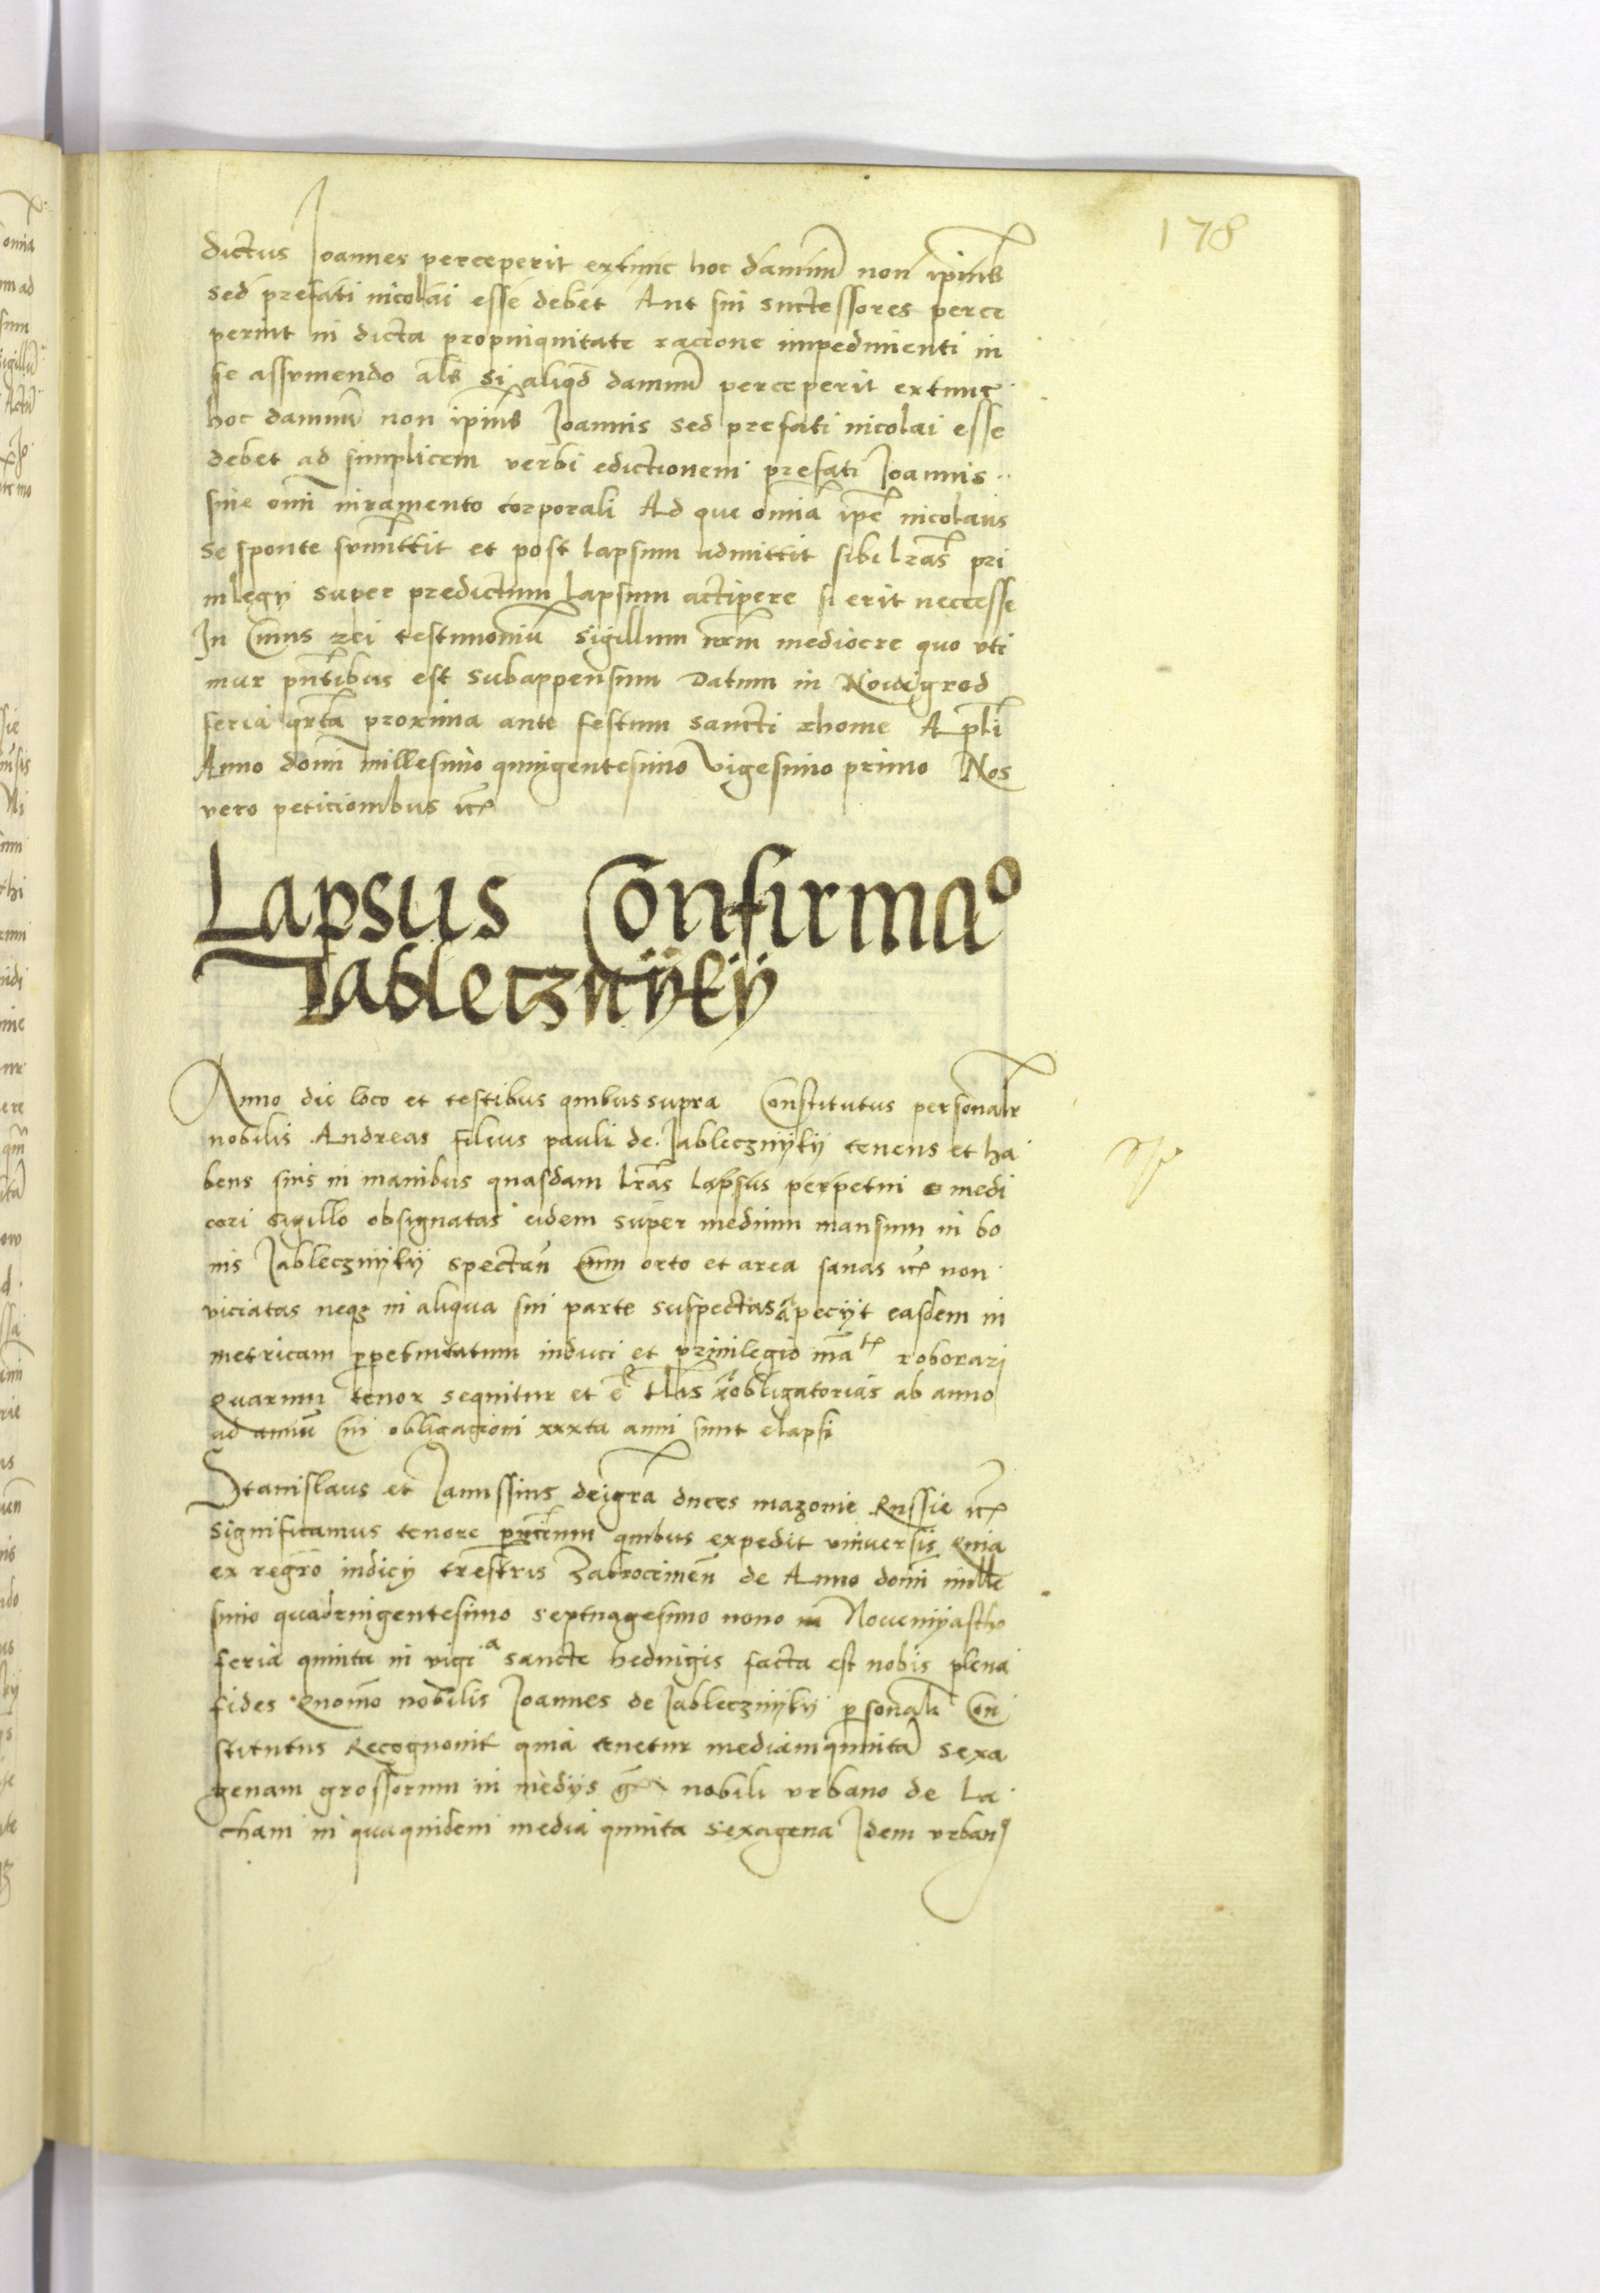 178
dictus Joannes perceperit extunc hoc damnũ non ipius
sed prefati nicolai esse debet Aut sui successores perce
perint in dicta propinquitate racione impedimenti in
se assumendo als si aliqd damnũ perceperit extunc
hoc damnũ non ipius Joannis sed prefati nicolai esse
debet ad simplicem verbi edictionem prefati Joannis
sine omi iuramento corporali Ad que omnia ipe nicolaus
se sponte summittit et post lapsum admittit sibi lras pri
uilegy super predictum lapsum accipere si erit neccesse
In Cuius rei testimoniũ sigillum nrm mediocre quo vti
mur pntibus est subappensum Datum in Nowigrod
feria qrta proxima ante festum sancti thome Apli
Anno domi millesimo quingentesimo vigesimo primo Nos
vero peticionibus etc
Lapsus Confirmao
Iablecznyky
Anno die loco et testibus quibus supra Constitutus personalr
nobilis Andreas filius pauli de Iableczniykÿ tenens et ha
bens suis in manibus quasdam lras lapsus perpetui medi
ocri sigillo obsignatas eidem super medium mansum in bo
nis Iableczniykÿ spectañ Cum orto et area sanas etc non
viciatas neqz in aliqua sui parte suspectas pecyt easdem in
metricam ppetuitatum induci et priuilegio roborari
quarum tenor sequitur et obligatorias ab anno
ad annũ Cui obligacioni xxxta anni sunt elapsi
Stanislaus et Ianussius dei gra duces mazouie Russie etc
Significamus tenore pncium quibus expedit vniuersis quia
ex regro iudicy trestris Zakrocimeñ de Anno domi mille
simo quadringentesimo septuagesimo nono Noueniyastho
feria quinta in vigia sancte heduigis facta est nobis plena
fides quomo nobilis Joannes de Iableczniykÿ psonalr Con
stitutus Recognouit quia tenetur mediam quintã sexa
genam grossorum in medys nobili vrbano de La
chani in quaquidem media quinta sexagena Idem vrban9